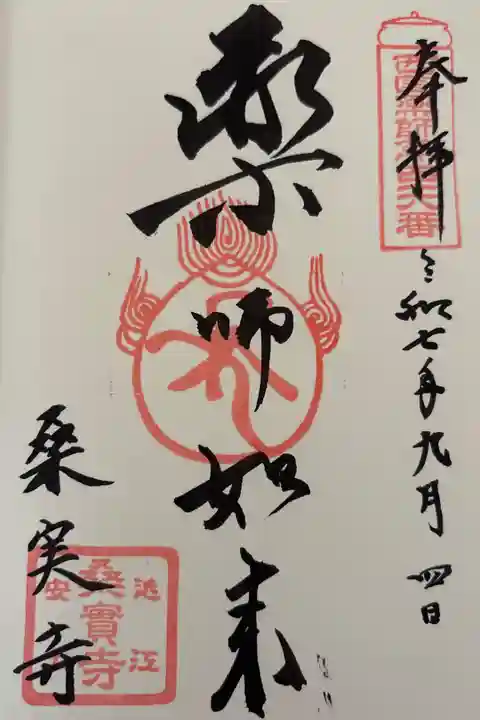 奉拝
令和七年九月四日
西国薬師第四十六番
薬師如来
桑実寺
近江
桑實寺
安土